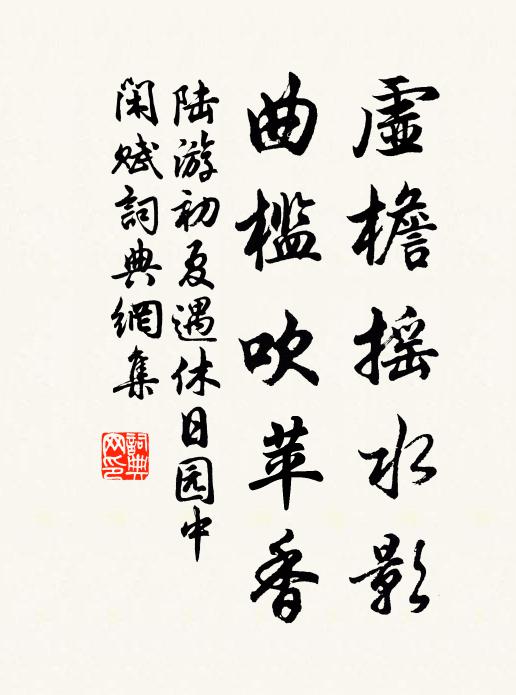 虚檐摇水影
曲槛吹苹香
陆游初夏遇休日园中
闲赋詞典網集
詞典网印